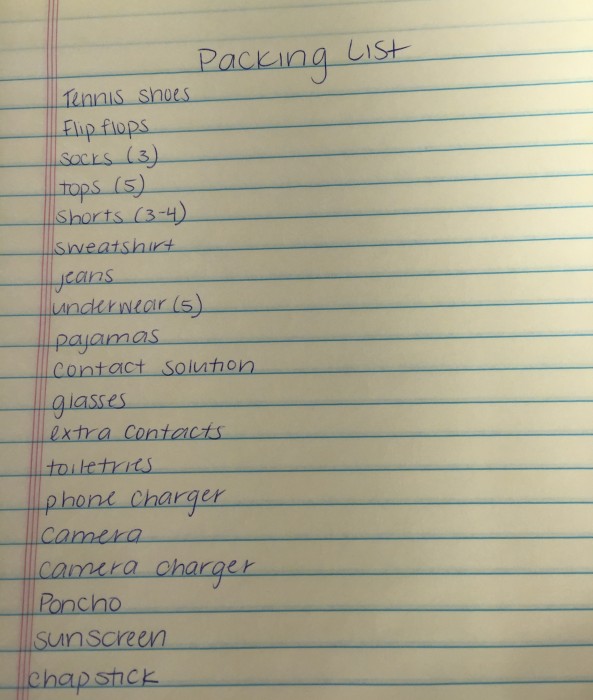 Packing List
Tennis shoes
Flip flops
socks (3)
tops (5)
shorts (3-4)
sweatshirt
jeans
underwear (5)
pajamas
contact solution
glasses
extra contacts
toiletries
phone charger
camera
camera charger
Poncho
sunscreen
chapstick